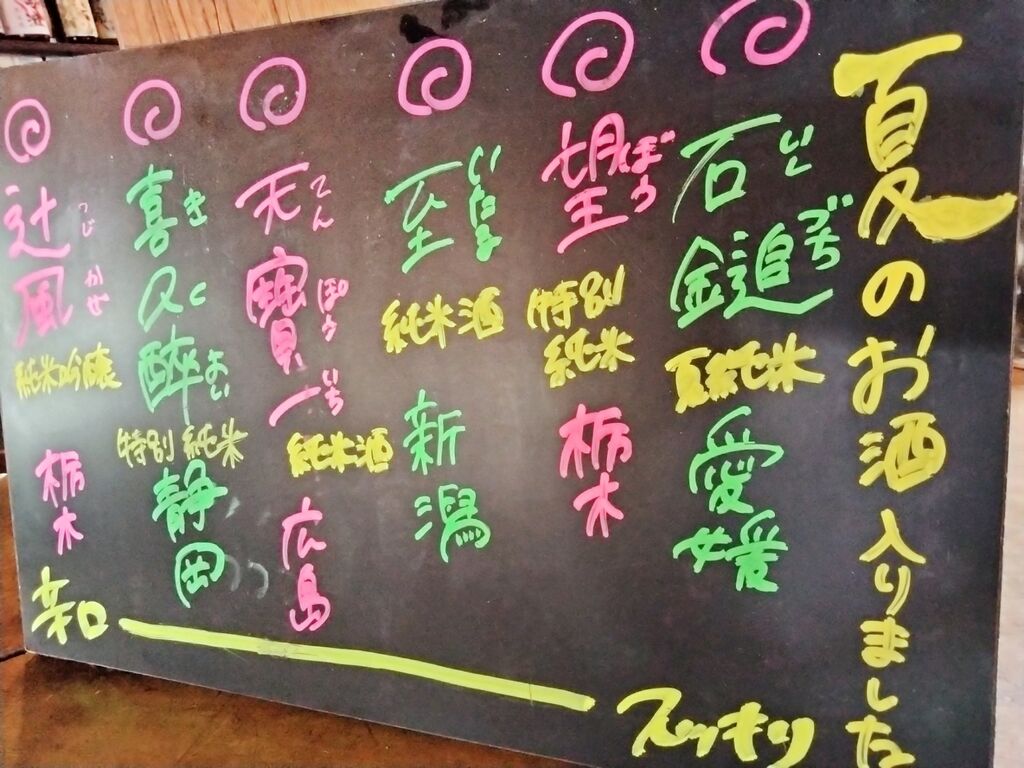 夏のお酒入りました
石鎚
いしづち
夏純米
愛媛
望
ぼう
特別
純米
栃木
至
いたる
純米酒
新潟
天寶一
てんぽういち
純米酒
広島
喜久酔
きくよい
特別純米
静岡
辻風
つじかぜ
純米吟醸
栃木
辛口
スッキリ